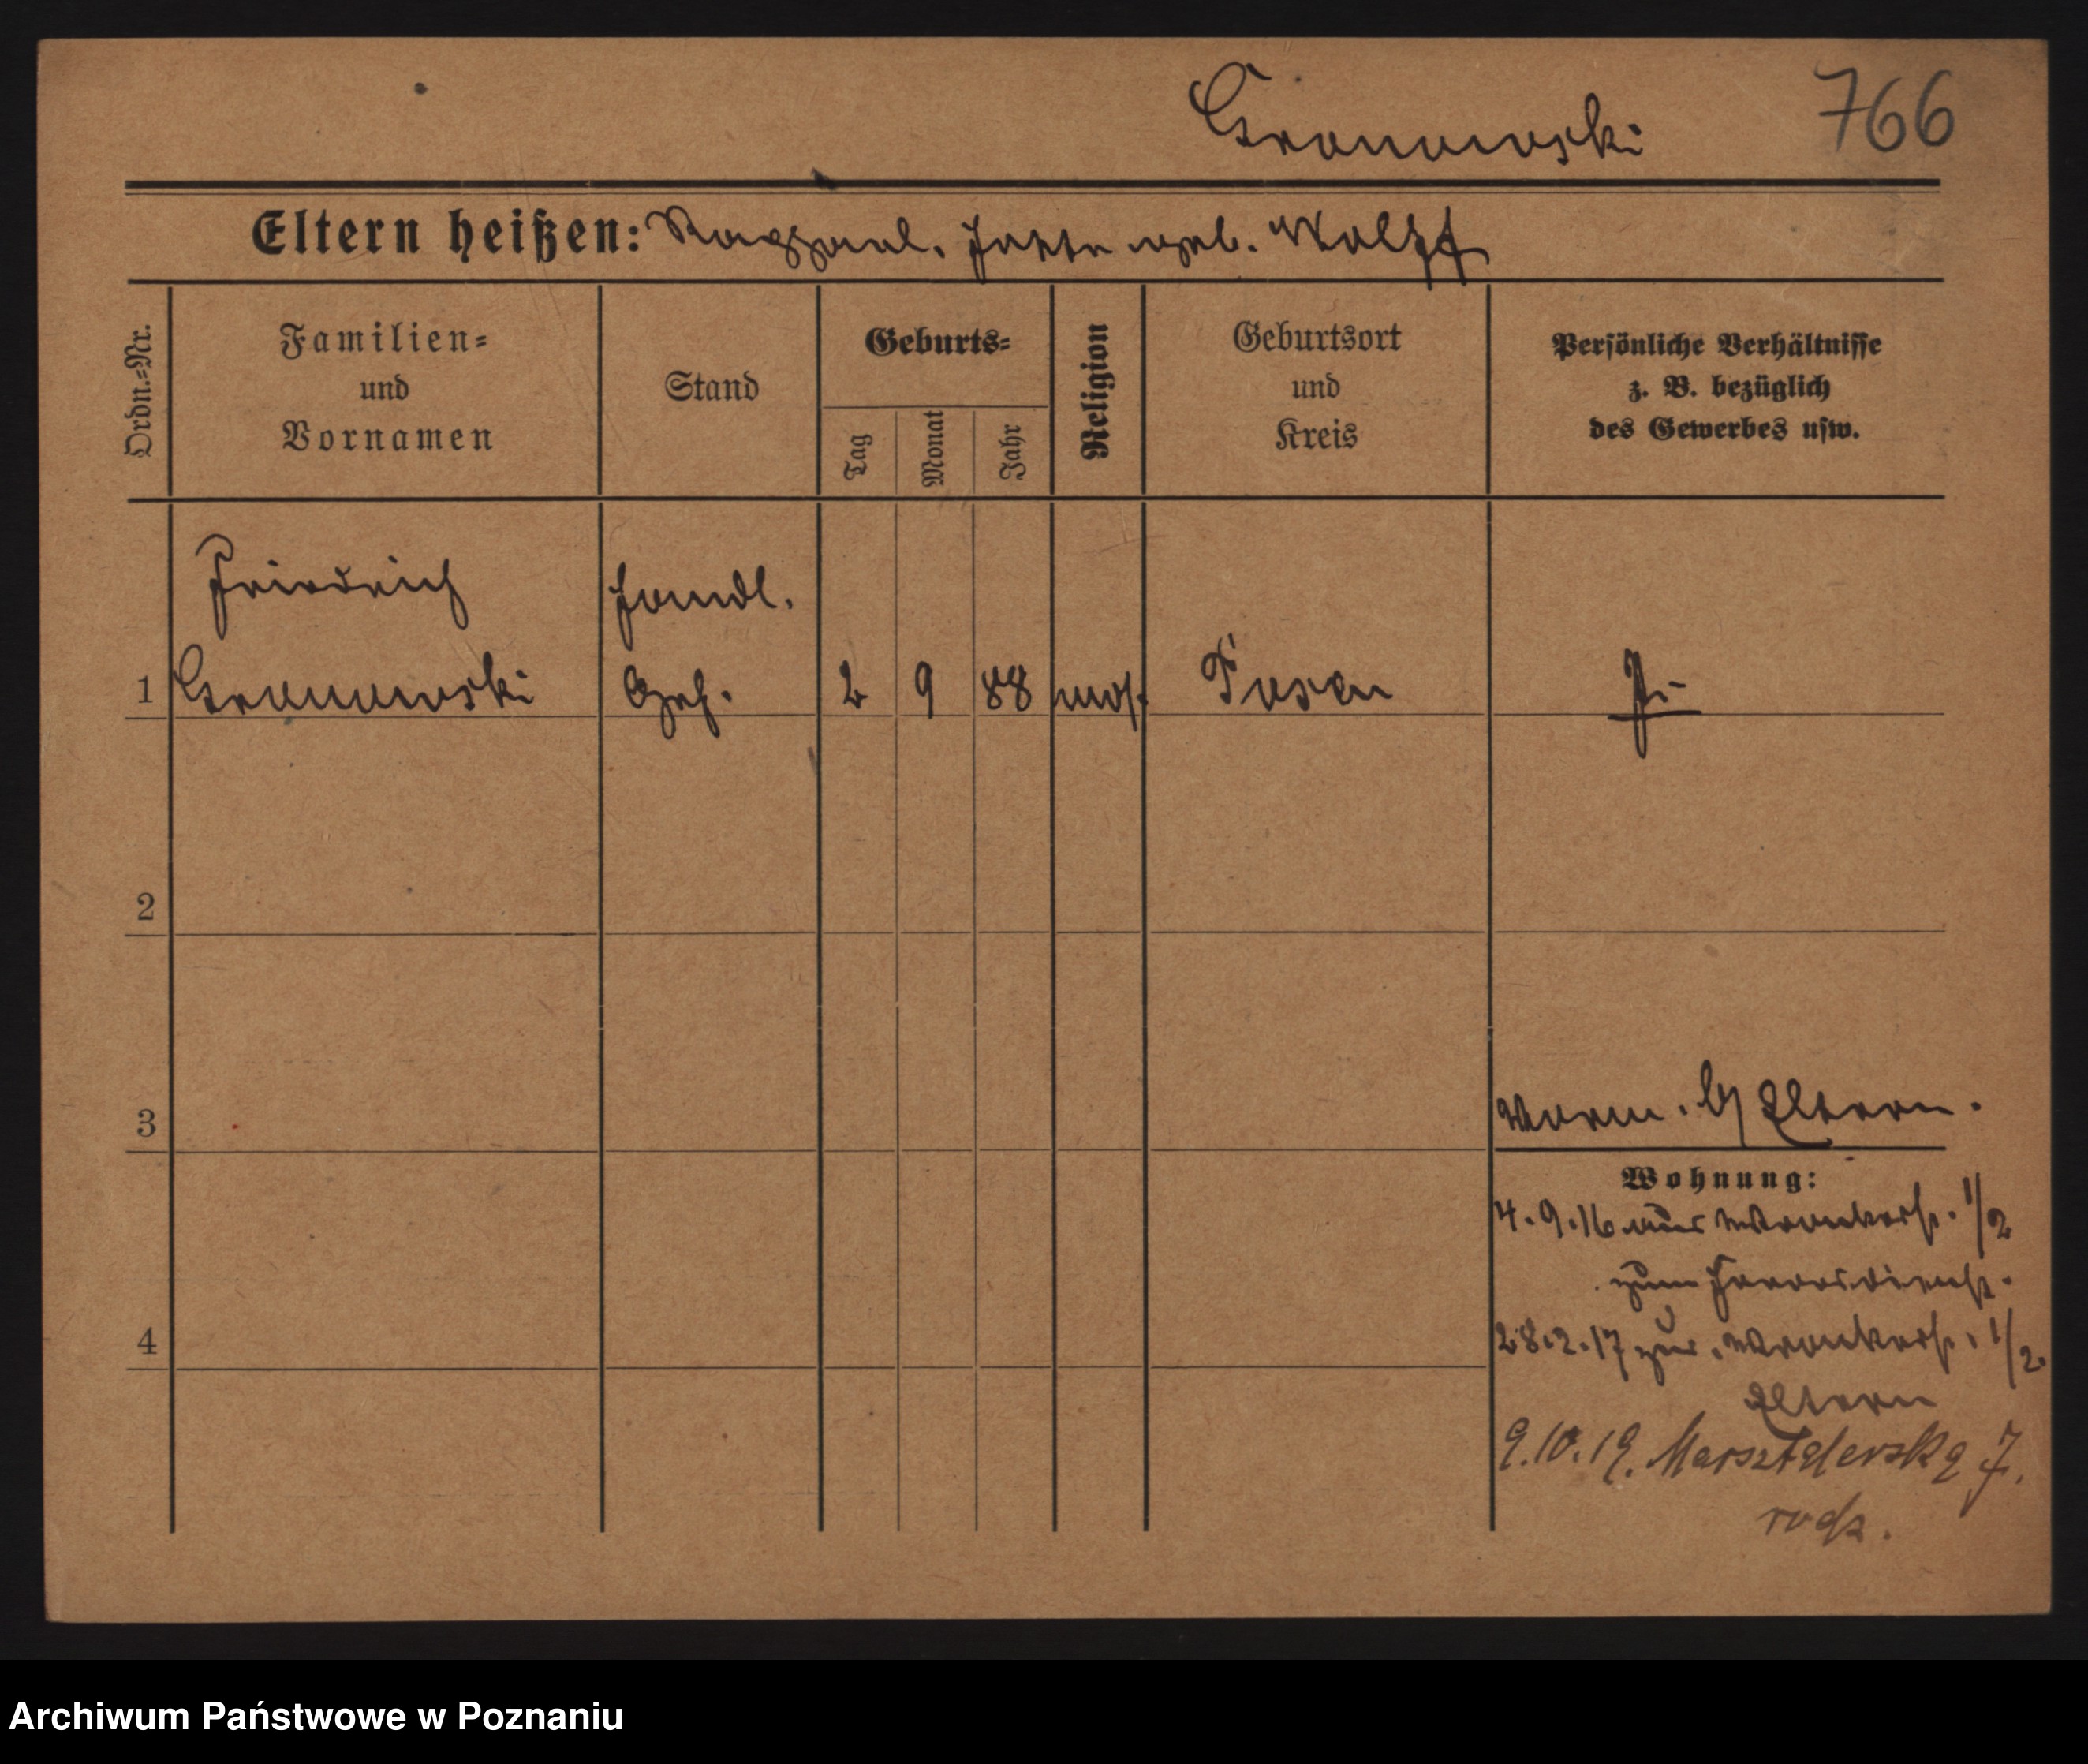 Gronowski 766
Eltern heißen: Raphael. geb. Wolff
Ordn.=Nr.
Familien=
und
Vornamen
Stand
Geburts=
Tag
Monat
Jahr
Religion
Geburtsort
und
Kreis
Persönliche Verhältnisse
z. B. bezüglich
des Gewerbes usw.
Friedrich Handl.
1 Gronowski Geh. 2 9 88 mos. Posen
2
3 Eltern.
Wohnung:
4.9.16 aus Wronkerstr. 1/2
zum Heeresdienst.
4 28.2.17 zur. Wronkerstr. 1/2.
Eltern
9.10.19. 7.
rodz.
Archiwum Państwowe w Poznaniu